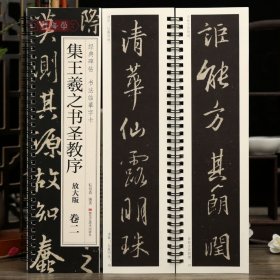 经典碑帖 书法临摹字卡
集王羲之书圣教序
放大版 卷二
际
莫则其源故知蠢
詎能方其朗潤
清華仙露明珠